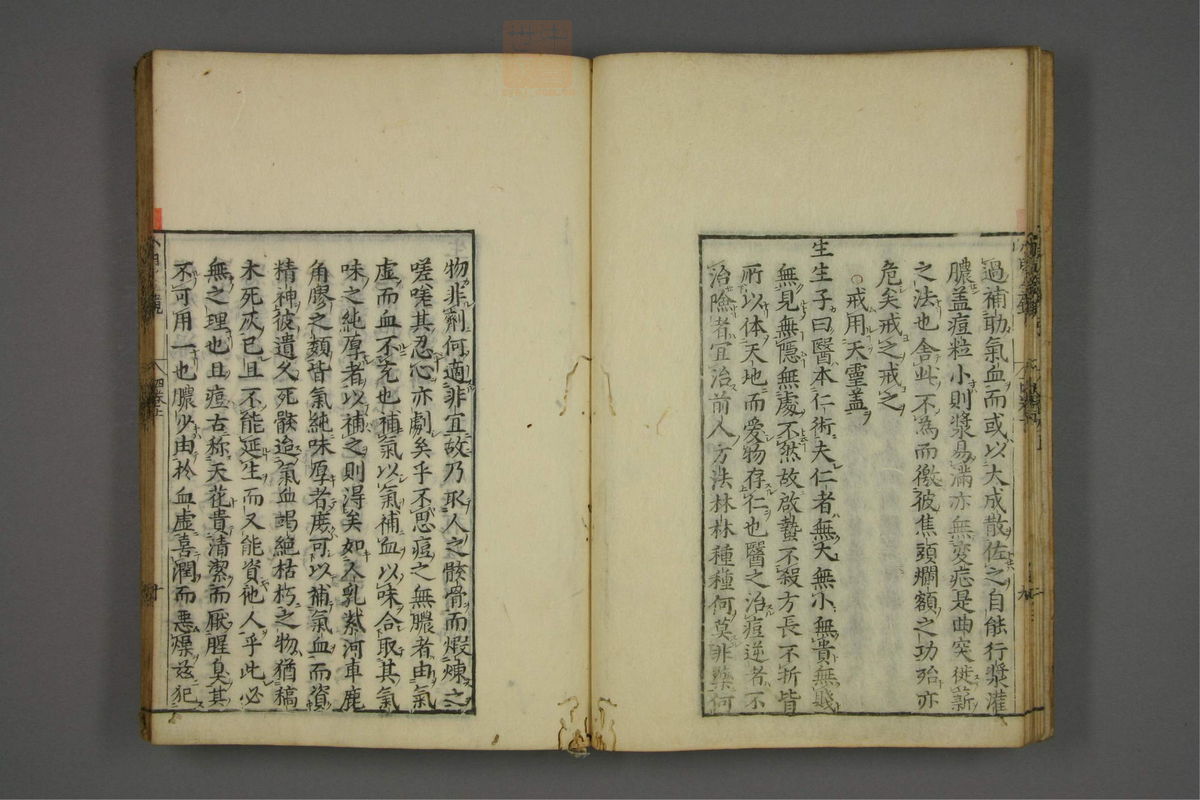 過補助氣血而或以大成散佐之自能行漿灌
膿盖痘粒小則漿易滿亦無変症是曲突徙薪
之法也舎此不為而徼彼焦頭爛額之功殆亦
危矣戒之戒之
○戒用天霊盖
生生子曰醫本仁術夫仁者無大無小無貴無賎
無見無隠無處不然故啟蟄不殺方長不折皆
所以体天地而愛物存仁也醫之治痘逆者不
治險者宜治前人方法林林種種何莫非藥何
物非劑何適非宜故乃取人之骸骨而煆煉之
嗟嗟其忍心亦劇矣乎不思痘之無膿者由氣
虚而血不充也補氣以氣補血以味合取其氣
味之純厚者以補之則淂矣如人乳紫河車鹿
角膠之類皆氣純味厚者庶可以補氣血而資
精神彼遺久死骸追氣血竭絶枯朽之物猶稿
木死灰已且不能延生而又能資他人乎此必
無之理也且痘古称天花貴清潔而厭腥臭其
不可用一也膿少由於血虚喜潤而悪燥玆犯